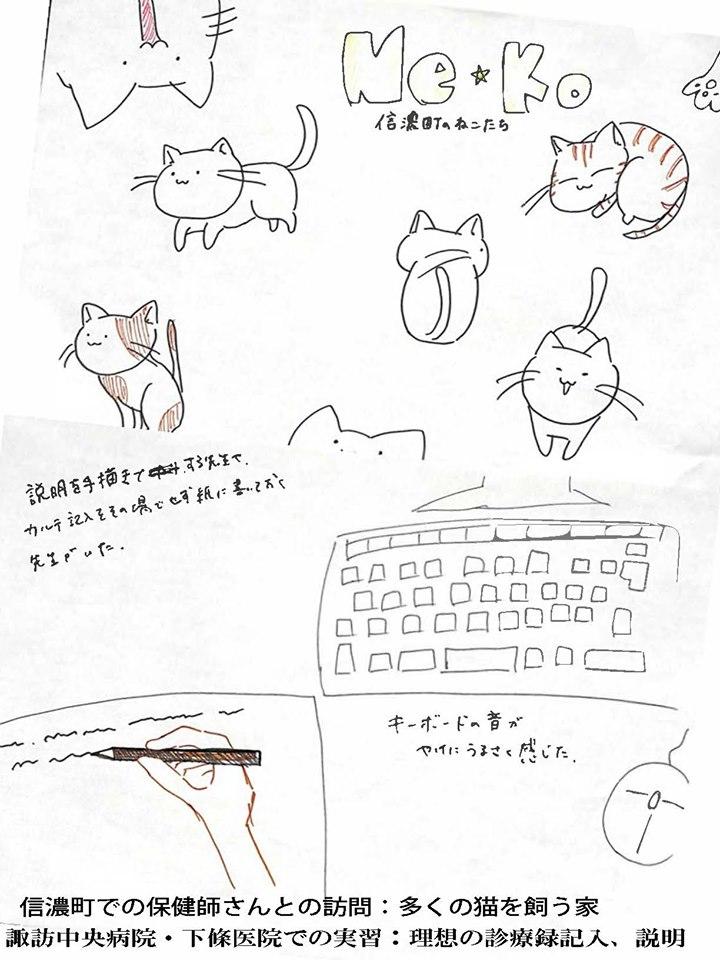 Ne☆Ko
信濃町のねこたち
説明を手描きでする先生で、
カルテ記入をその場でせず紙に書いておく
先生がいた.
キーボードの音が
やけにうるさく感じた.
信濃町での保健師さんとの訪問：多くの猫を飼う家
諏訪中央病院・下條医院での実習：理想の診療録記入、説明